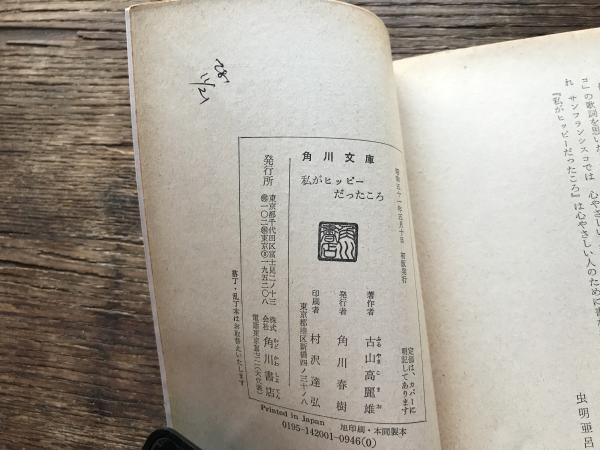 11/21
角川文庫
私がヒッピー
だったころ
昭和五十一年四月十日 初版発行
著作者 古山高麗雄
ふるやまこまお
発行者 角川春樹
印刷者 村沢達弘
東京都港区新橋四ノ三十ノ八
発行所
東京都千代田区富士見二ノ十三
〒一〇二 振東京③一九五二〇八
株式会社 角川書店
かどかわしょてん
落丁・乱丁本はお取替えいたします
定価は、カバーに
明記してあります
Printed in Japan 旭印刷・本間製本
0195-142001-0946(0)
コ」の歌詞を思い
れ サンフランシスコでは 心やさしい
『私がヒッピーだったころ』は心やさしい人のために書
虫明亜呂